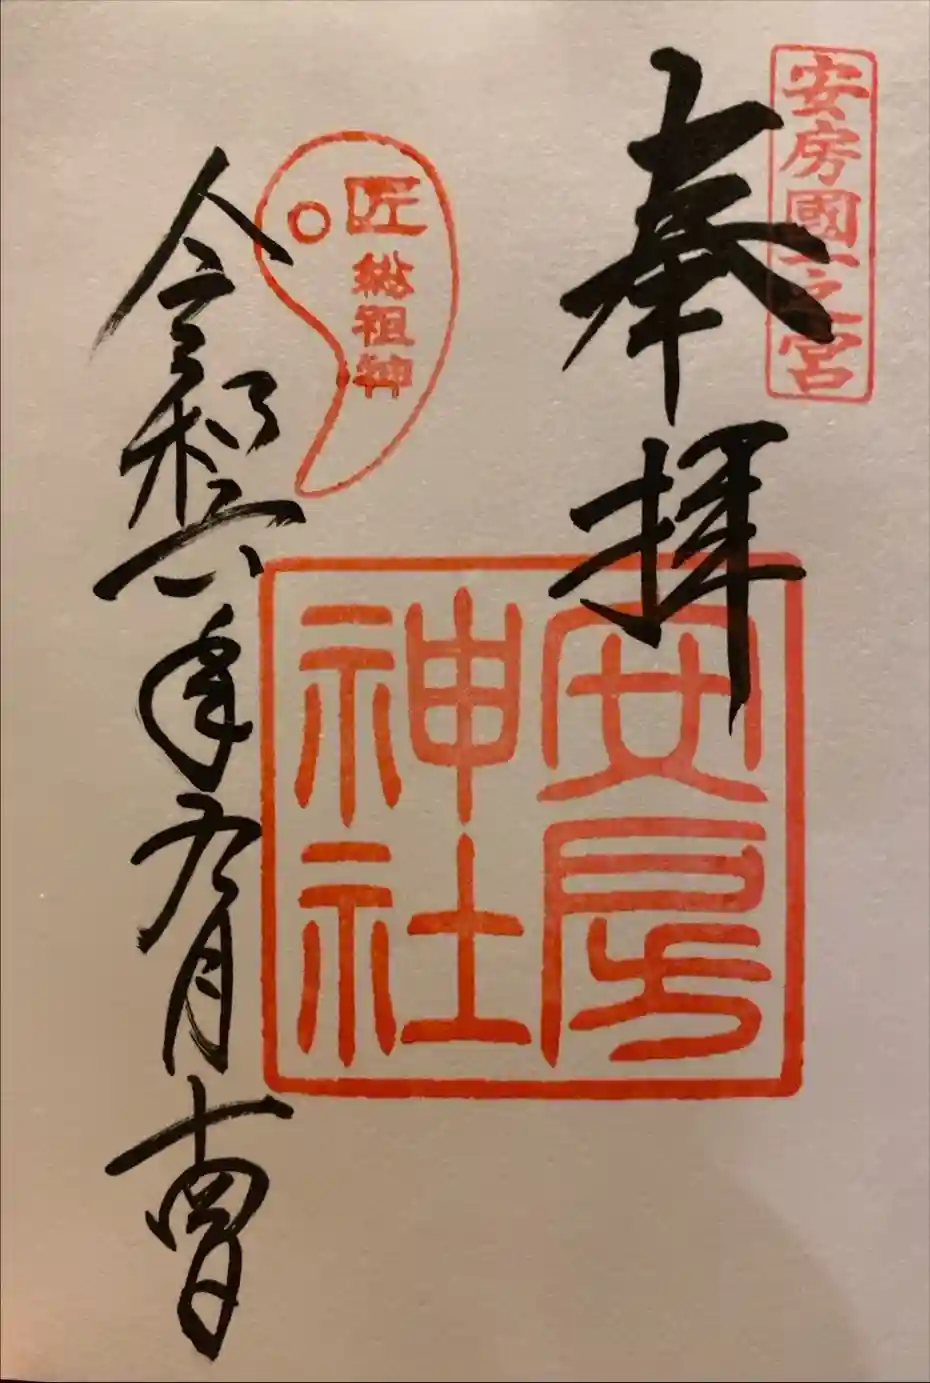 安房國一之宮
奉拝
安房
神社
匠総祖神
令和六年九月十四日